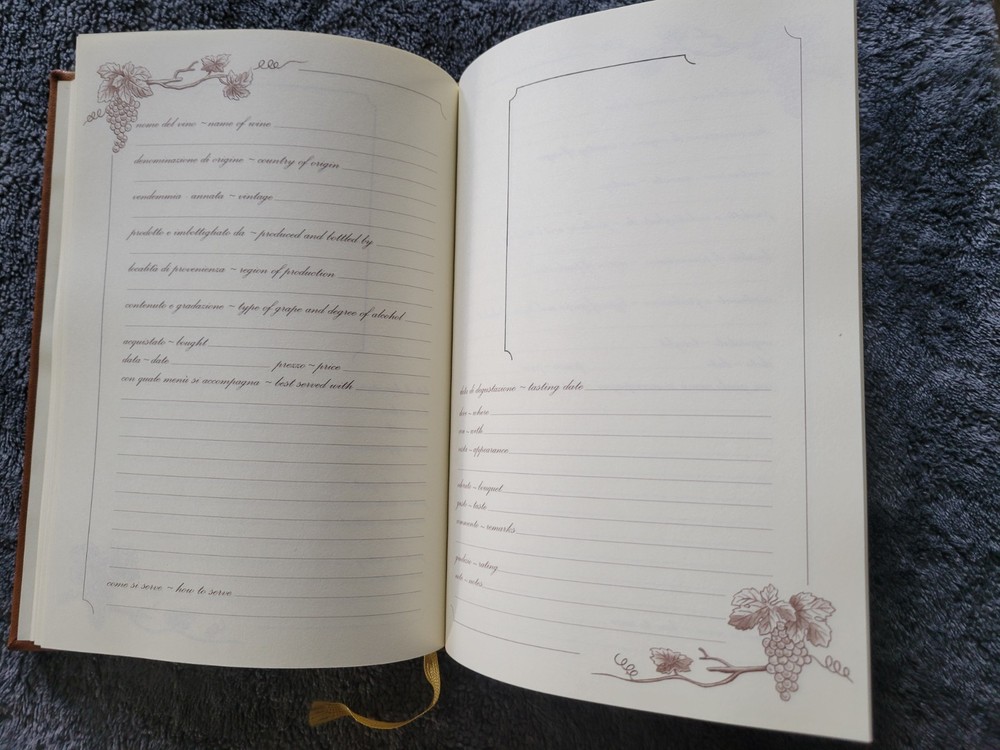 nome del vino ~ name of wine
denominazione di origine ~ country of origin
vendemmia - annata ~ vintage
prodotto e imbottigliato da ~ produced and bottled by
località di provenienza ~ region of production
contenuto e gradazione ~ type of grape and degree of alcohol
acquistato ~ bought
data ~ date prezzo ~ price
con quale menù si accompagna ~ best served with
come si serve ~ how to serve
di degustazione ~ tasting date
~ where
~ with
~ appearance
~ bouquet
~ taste
~ remarks
~ rating
~ notes